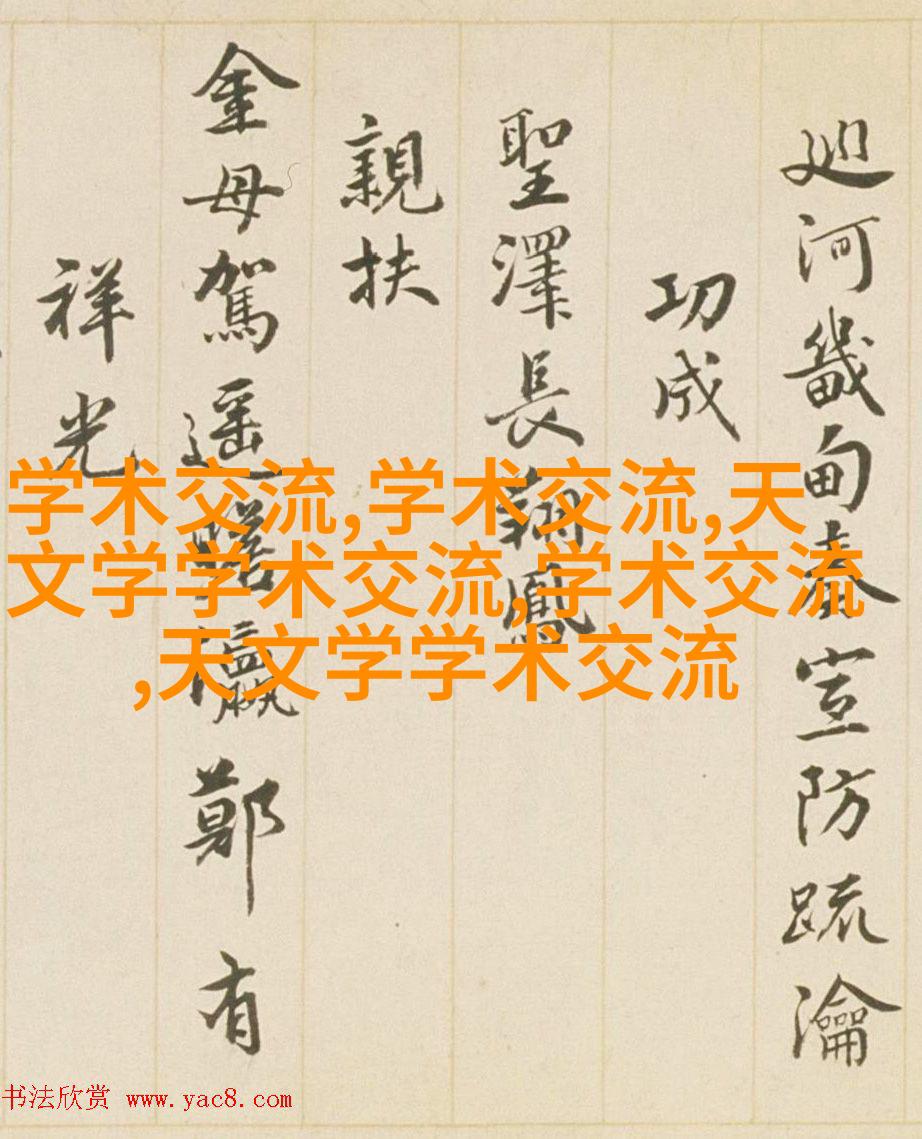 廵河畿甸奏宣防疏瀹
功成
聖澤長翔鳳
親扶
金母駕遥瞻瀛鄭有
祥光
学术交流,学术交流,天
文学学术交流,学术交流
,天文学学术交流
书法欣赏 www.yac8.com